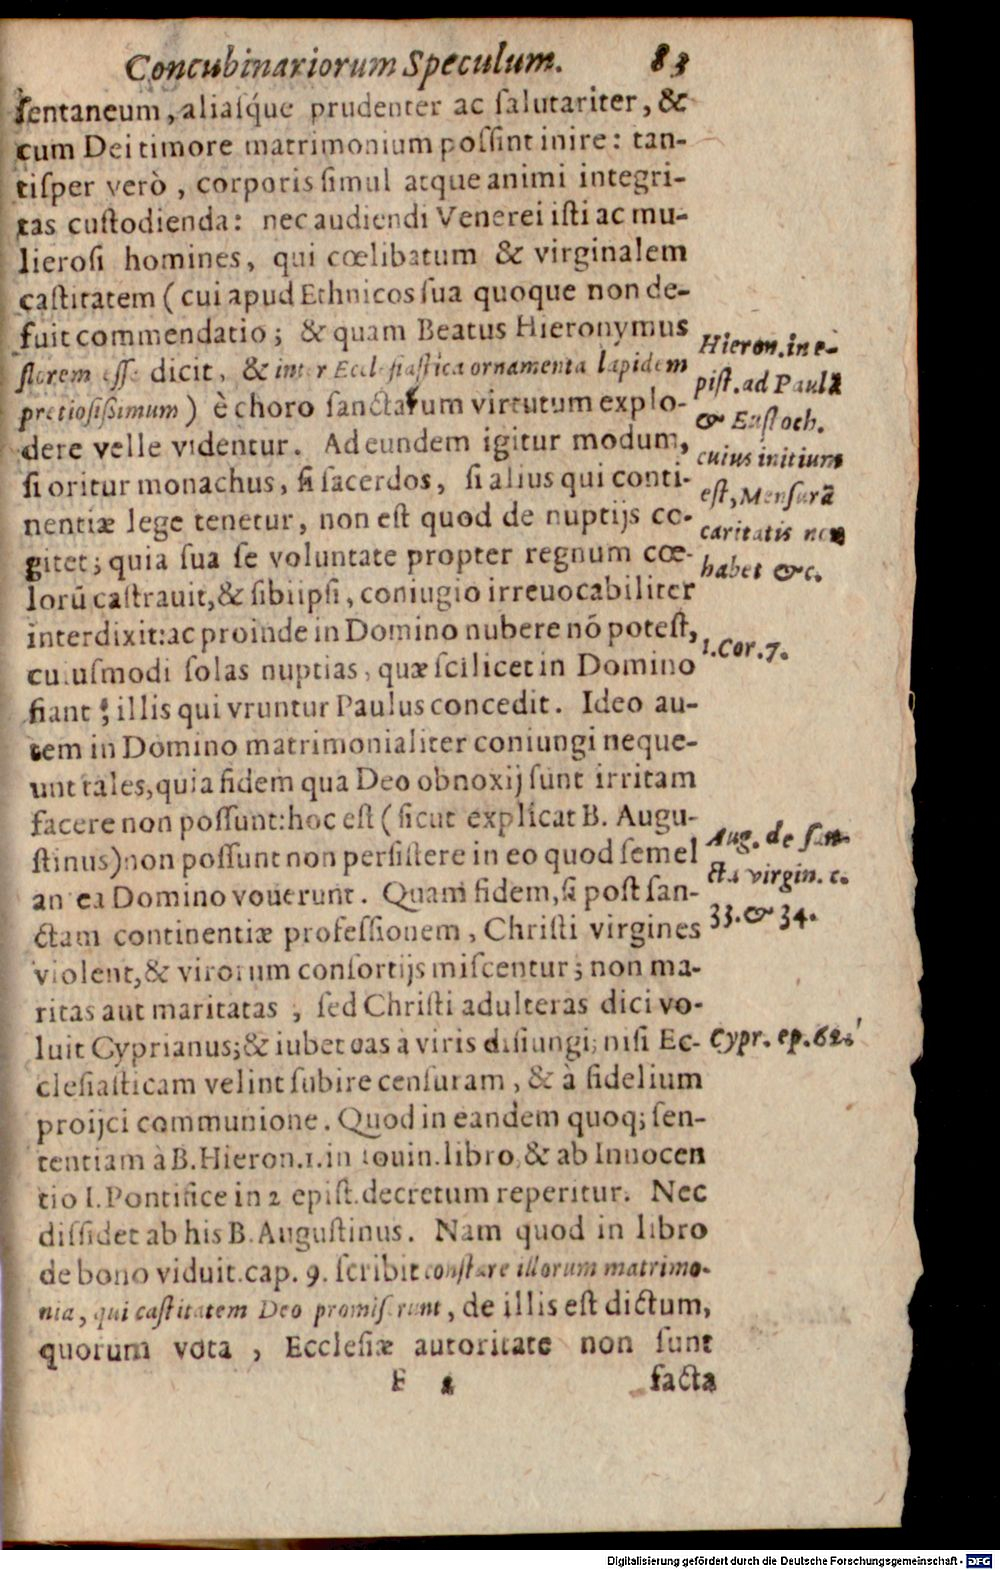 Concubinariorum Speculum. 83
ſentaneum, aliaſq́ue prudenter ac ſalutariter, &
cum Dei timore matrimonium poſſint inire: tan-
tiſper verò, corporis ſimul atque animi integri-
tas cuſtodienda: nec audiendi Venerei iſti ac mu-
lieroſi homines, qui cœlibatum & virginalem
caſtitatem (cui apud Ethnicos ſua quoque non de-
fuit commendatio; & quam Beatus Hieronymus
florem eſſe dicit, & inter Eccleſiaſtica ornamenta lapidem
pretioſiſſimum) è choro ſanctarum virtutum explo-
dere velle videntur. Ad eundem igitur modum,
ſi oritur monachus, ſi ſacerdos, ſi alius qui conti-
nentiæ lege tenetur, non eſt quod de nuptijs co-
gitet; quia ſua ſe voluntate propter regnum cœ-
lorū caſtrauit, & ſibi ipſi, coniugio irreuocabiliter
interdixit: ac proinde in Domino nubere nō poteſt,
cuiuſmodi ſolas nuptias, quæ ſcilicet in Domino
fiant; illis qui vruntur Paulus concedit. Ideo au-
tem in Domino matrimonialiter coniungi neque-
unt tales, quia fidem qua Deo obnoxij ſunt irritam
facere non poſſunt: hoc eſt (ſicut explicat B. Augu-
ſtinus) non poſſunt non perſiſtere in eo quod ſemel
an ea Domino vouerunt. Quam fidem, ſi poſt ſan-
ctam continentiæ profeſſionem, Chriſti virgines
violent, & virorum conſortijs miſcentur; non ma-
ritas aut maritatas, ſed Chriſti adulteras dici vo-
luit Cyprianus; & iubet eas à viris diſiungi, niſi Ec-
cleſiaſticam velint ſubire cenſuram, & à fidelium
proijci communione. Quod in eandem quoq; ſen-
tentiam à B. Hieron. 1. in Iouin. libro, & ab Innocen
tio I. Pontifice in 2 epiſt. decretum reperitur. Nec
diſſidet ab his B. Auguſtinus. Nam quod in libro
de bono viduit. cap. 9. ſcribit conſtare illorum matrimo-
nia, qui caſtitatem Deo promiſerunt, de illis eſt dictum,
quorum vota, Eccleſiæ autoritate non ſunt
facta
Hieron. in e-
piſt. ad Paulā
& Euſtoch.
cuius initium
eſt, Menſurā
caritatis non
habet &c.
1. Cor. 7.
Aug. de ſan-
cta virgin. c.
33. & 34.
Cypr. ep. 62.
Digitalisierung gefördert durch die Deutsche Forschungsgemeinschaft - DFG